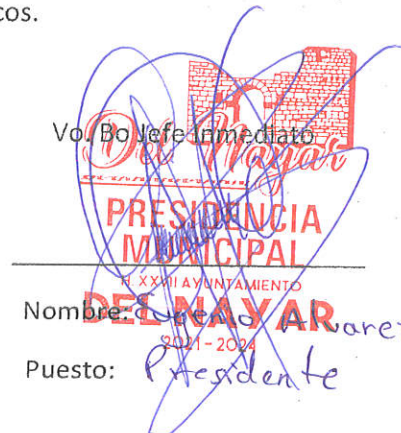 cos.
Vo. Bo Jefe Inmediato
Del Nayar
PRESIDENCIA
MUNICIPAL
H. XXVII AYUNTAMIENTO
DEL NAYAR
2021-2024
Nombre: Eugenio Alvarez
Puesto: Presidente